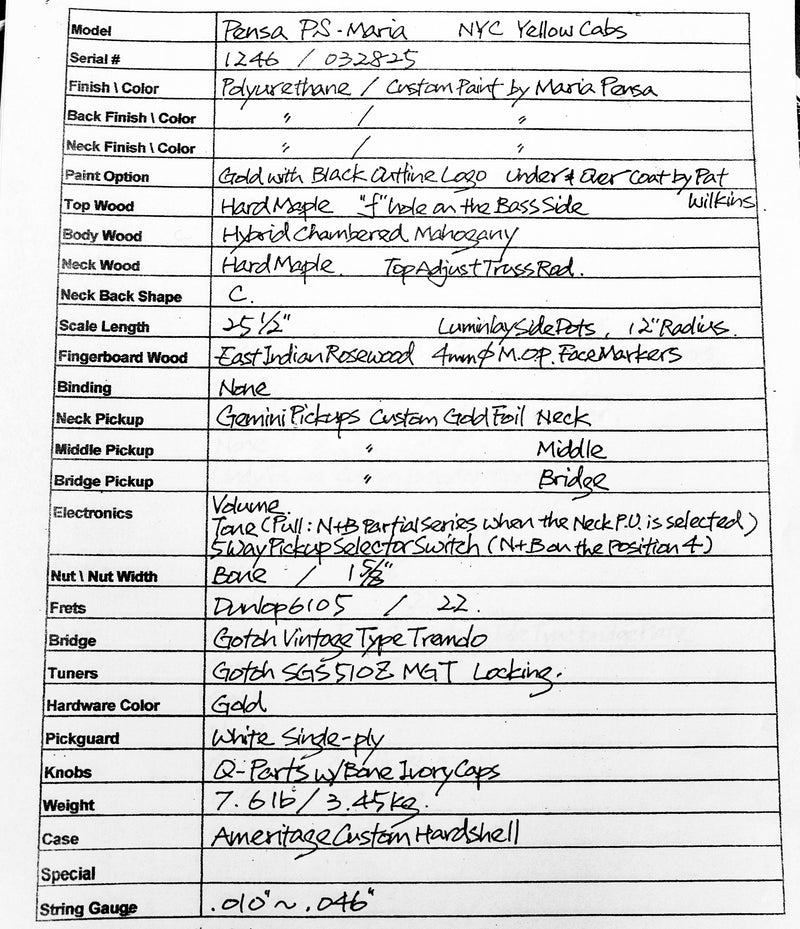 Model Pensa PS-Maria NYC Yellow Cabs
Serial # 1246 / 032825
Finish \ Color Polyurethane / Custom Paint by Maria Pensa
Back Finish \ Color 〃 / 〃
Neck Finish \ Color 〃 / 〃
Paint Option Gold with Black Outline Logo Under & Over Coat by Pat
Wilkins
Top Wood Hard Maple "f" hole on the Bass Side
Body Wood Hybrid Chambered Mahogany
Neck Wood Hard Maple. Top Adjust Truss Rod.
Neck Back Shape C.
Scale Length 25 1/2" Luminlay Side Dots, 12" Radius.
Fingerboard Wood East Indian Rosewood 4mmφ M.O.P. Face Markers
Binding None
Neck Pickup Gemini Pickups Custom Gold Foil Neck
Middle Pickup 〃 Middle
Bridge Pickup 〃 Bridge
Electronics Volume.
Tone (Pull: N+B Partial series when the Neck P.U. is selected)
5 Way Pickup Selector Switch (N+B on the position 4)
Nut \ Nut Width Bone / 1 5/8"
Frets Dunlop 6105 / 22.
Bridge Gotoh Vintage Type Tremolo
Tuners Gotoh SGS510Z MGT Locking.
Hardware Color Gold
Pickguard White Single-ply
Knobs Q-Parts w/Bone Ivory Caps
Weight 7.6 lb / 3.45 kg.
Case Ameritage Custom Hardshell
Special
String Gauge .010" ~ .046"